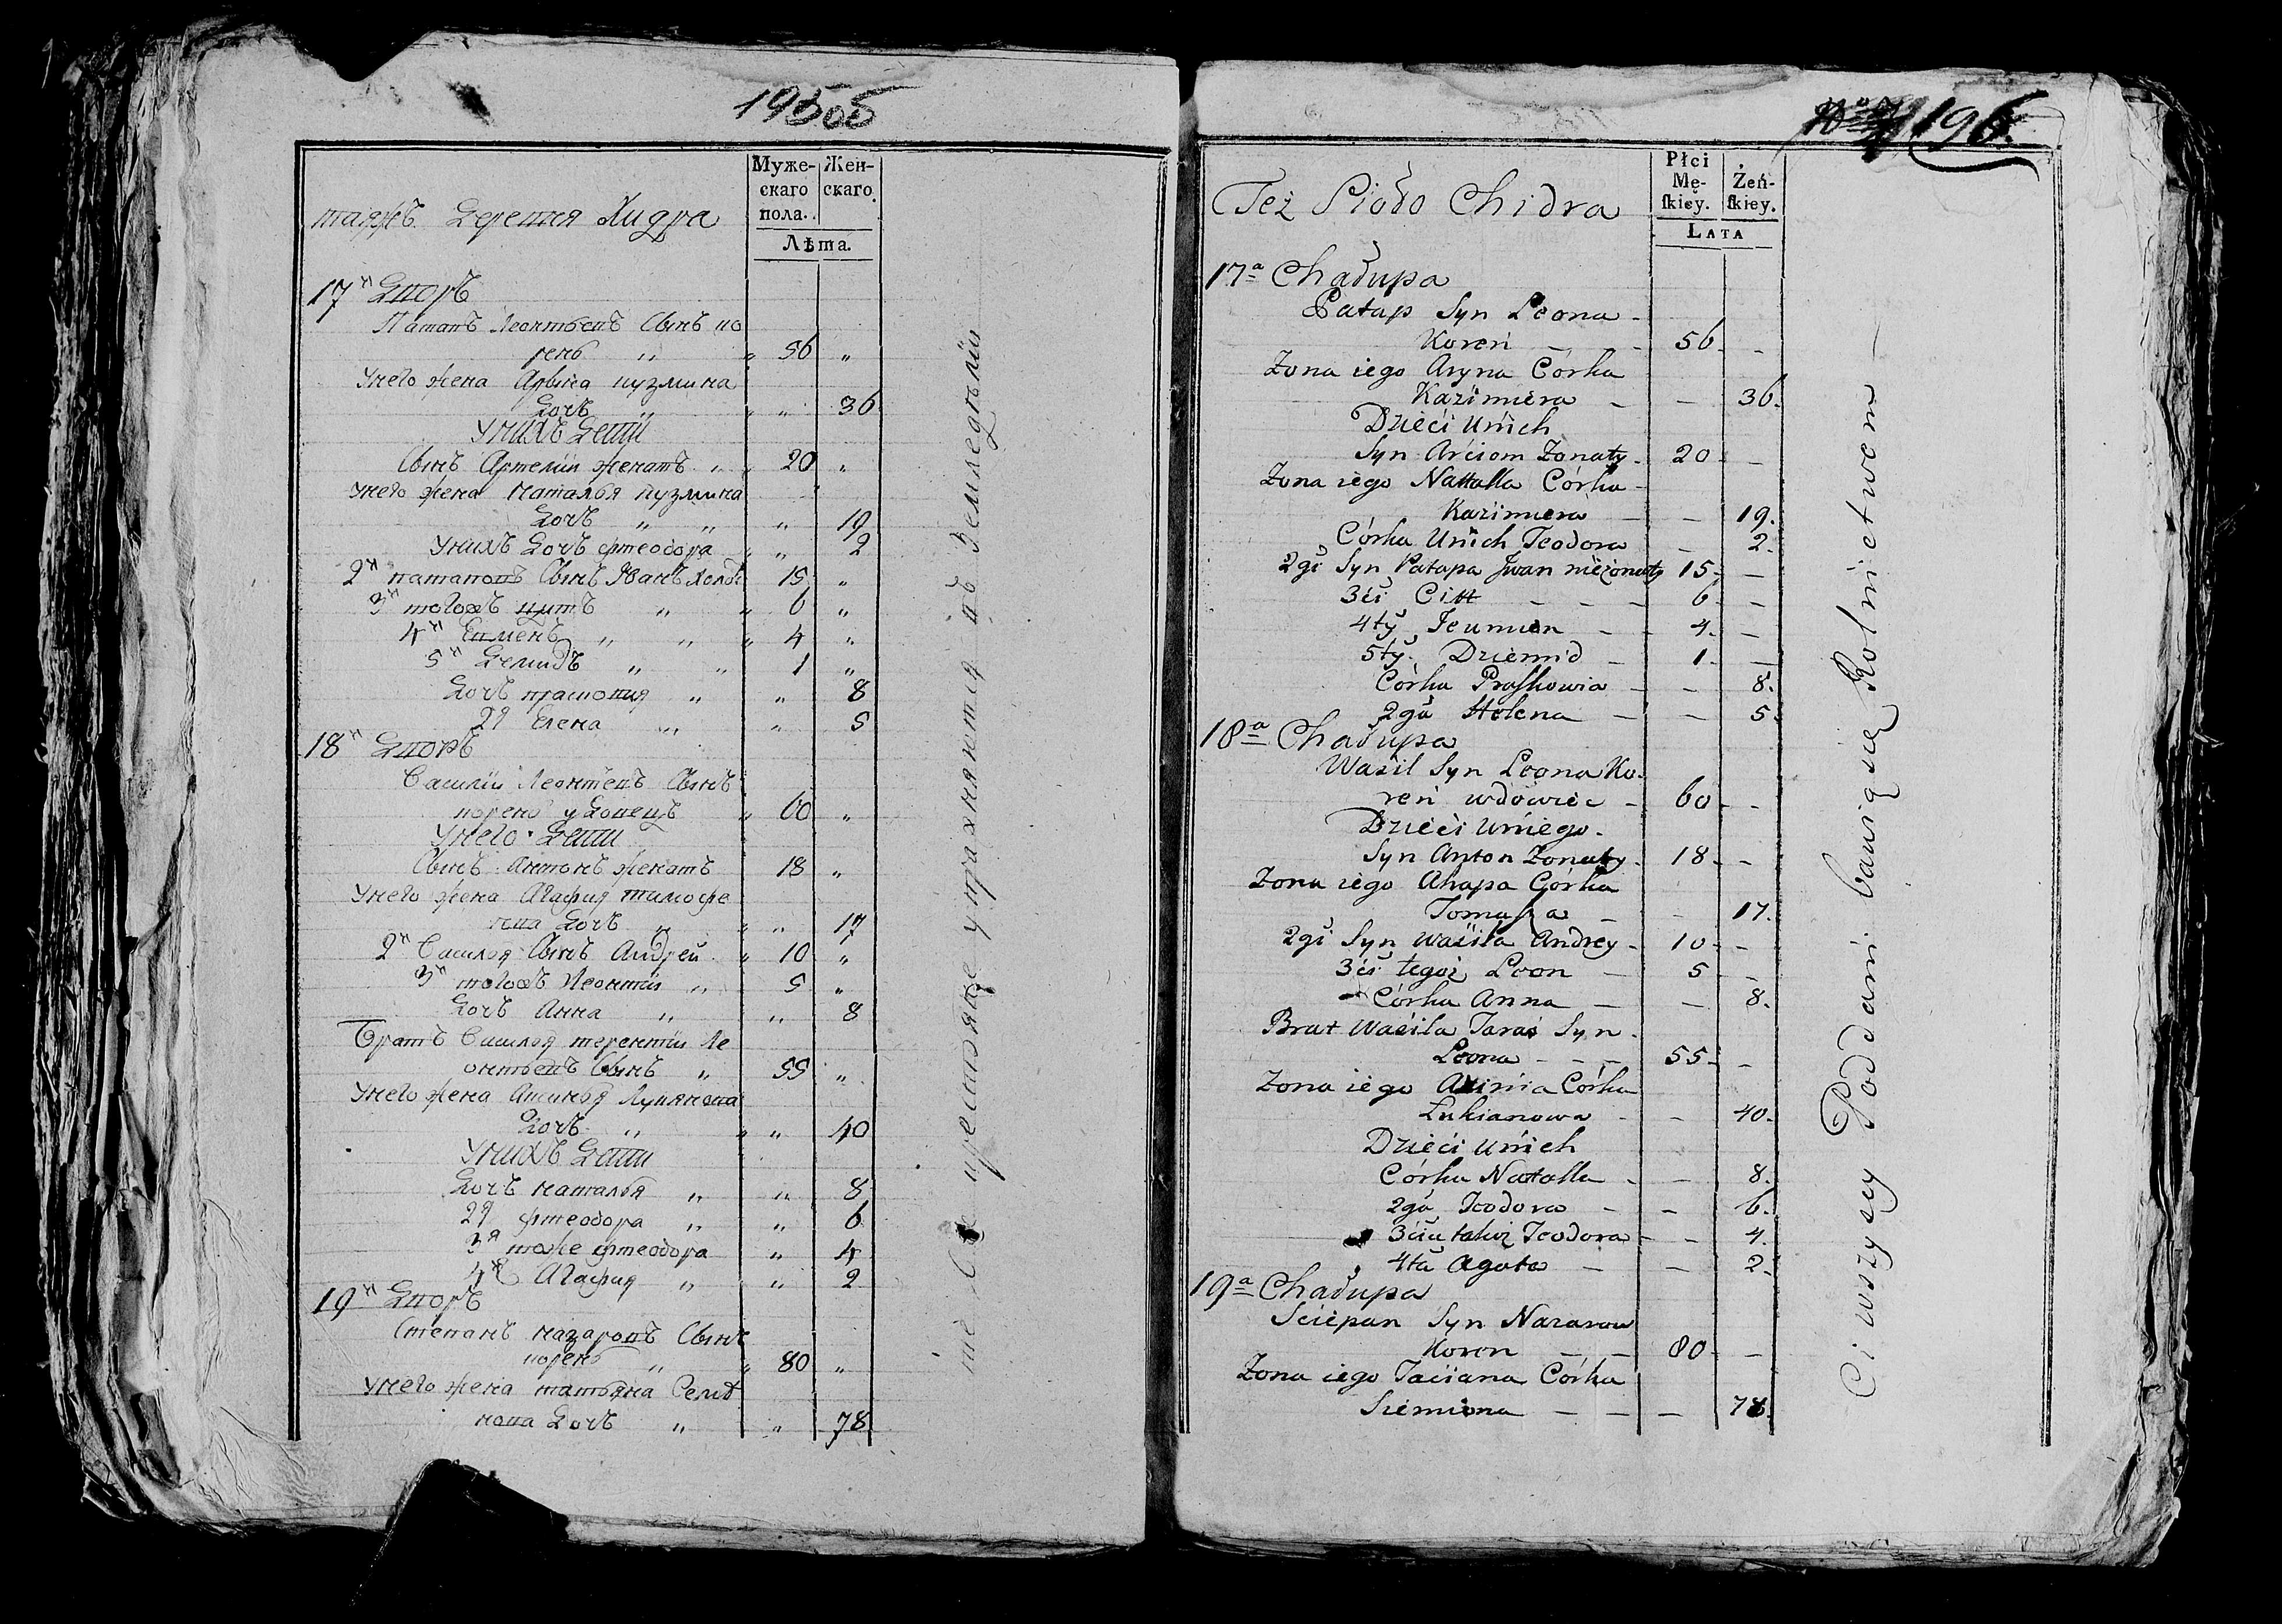 195об
Муже-
скаго
пола.
Жен-
скаго.
Лѣта.
таяжъ Деревня Хидра
17й Дворъ
Патапъ Леонтьевъ Сынъ Ко
рень " " 56 "
Унего жена Арына кузмина
Дочь " " " 36
Унихъ Дети
Сынъ Артемiй женатъ " " 20 "
Унего жена наталья кузмина
Дочь " " " 19
Унихъ Дочь фтеодора " " 2
2й патаповъ Сынъ Иванъ холос 15 "
3й тогожъ цитъ " " 6 "
4й Евменъ " " " 4 "
5й Демидъ " " 1 "
Дочь прасковия " " 8
2я Елена " " 5
18й Дворъ
Василiй Леонтевъ Сынъ
корень удовецъ " 60 "
Унего Дети
Сынъ Антонъ женатъ 18 "
Унего жена Агафия тимофе
ева Дочь " " " 17
2й Василья Сынъ Андрей " 10 "
3й тогожъ Леонтiй " 5 "
Дочь Анна " " 8
Братъ Василья терентiй Ле
онтьевъ Сынъ " 55 "
Унего жена Аксинья Лукянова
Дочь " " " 40
Унихъ Дети
Дочь наталья " " 8
2я фтеодора " " 6
3я тоже фтеодора " 4
4я Агафия " " 2
19й Дворъ
Степанъ назаровъ Сынъ
корень " " 80 "
Унего жена татьяна Семе
нова Дочь " " 78
крестьяне упражняются въ Земледелiи
196.
Płci
Mę-
ſkiey.
Żeń-
ſkiey.
LATA
Też Sioło Chidra
17a Chałupa
Patap Syn Leona -
Koreń - - 56 - -
Żona iego Aryna Córka
Kazimiera - - 36.
Dzieci Unich
Syn Arciom Żonaty - 20 - -
Żona iego Natalla Córka -
Kazimiera - - 19.
Córka Unich Teodora - 2.
2gi Syn Patapa Jwan nieżonaty 15 - -
3ci Citt - - - 6 - -
4ty Jeumien - - 4. -
5ty. Dziemid - 1 - -
Córka Praſkowia - - 8.
2ga Helena - - 5.
18a Chałupa
Wasil Syn Leona Ko-
reń wdowiec - 60 - -
Dzieci Uniego -
Syn Anton Żonaty - 18 - -
Żona iego Ahapa Córka
Tomaſza - - 17.
2gi Syn Wasila Andrey - 10 - -
3ci tegoż Leon - 5 - -
Córka Anna - - 8.
Brat Wasila Taras Syn -
Leona - - - 55 - -
Żona iego Axinia Córka
Łukianowa - - 40.
Dzieci Unich
Córka Natalla - - 8.
2ga Teodora - - 6.
3cia takoż Teodora - - 4.
4ta Agata - - 2.
19a Chałupa
Sciepan Syn Nazarow
Koren - - 80 - -
Żona iego Taciana Córka
Siemiona - - - 78.
Ci wszyscy Poddani bawią się Rolnictwem -